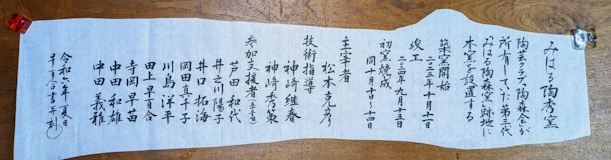 みはる陶秀窯
陶芸クラブ陶森会が
所有していた第三代
「みはる陶森窯」跡地に
本窯を設置する
築窯開始
二〇二三年十月十一日
竣工
二〇二四年九月十五日
初窯焼成
同十月十日〜十四日
主宰者
松本克彦
技術指導
神崎継春
神崎秀策
参加支援者(五十音)
芦田和代
井之川陽子
井口拓海
岡田真千子
川島洋平
田上早百合
寺岡早苗
中田和雄
中田義雅
令和六年夏日
早百合書